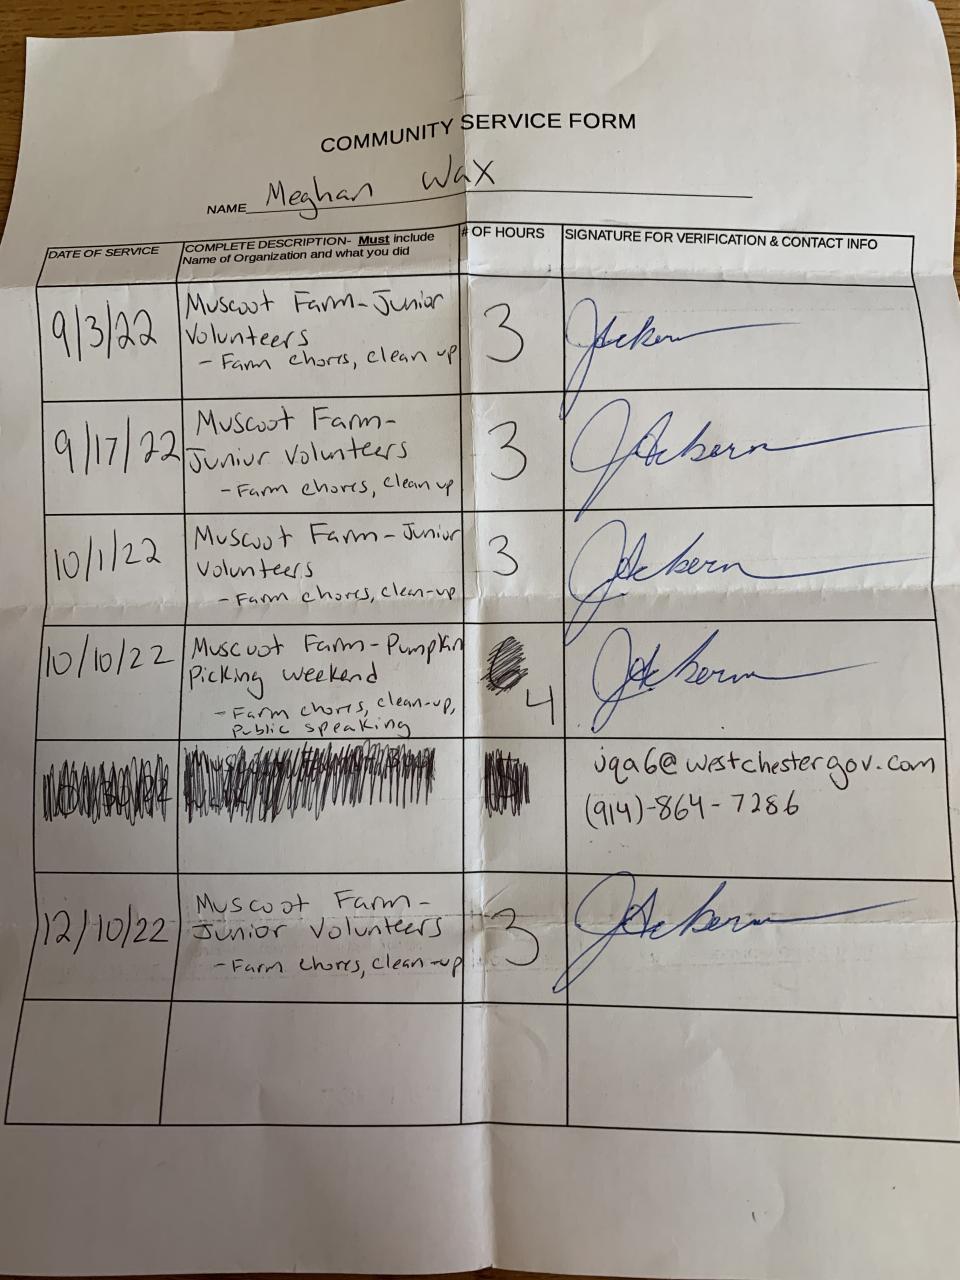 COMMUNITY SERVICE FORM
NAME Meghan Wax
DATE OF SERVICE
COMPLETE DESCRIPTION- Must include
Name of Organization and what you did
# OF HOURS
SIGNATURE FOR VERIFICATION & CONTACT INFO
9/3/22
Muscoot Farm-Junior
Volunteers
- Farm chores, clean up
3
JAckerm
9/17/22
Muscoot Farm-
Junior Volunteers
- Farm chores, clean up
3
JAckerm
10/1/22
Muscoot Farm-Junior
Volunteers
- Farm chores, clean-up
3
JAckerm
10/10/22
Muscoot Farm-Pumpkin
Picking weekend
- Farm chores, clean-up,
public speaking
4
JAckerm
jqa6@westchestergov.com
(914)-864-7286
12/10/22
Muscoot Farm-
Junior Volunteers
- Farm chores, clean-up
3
JAckerm